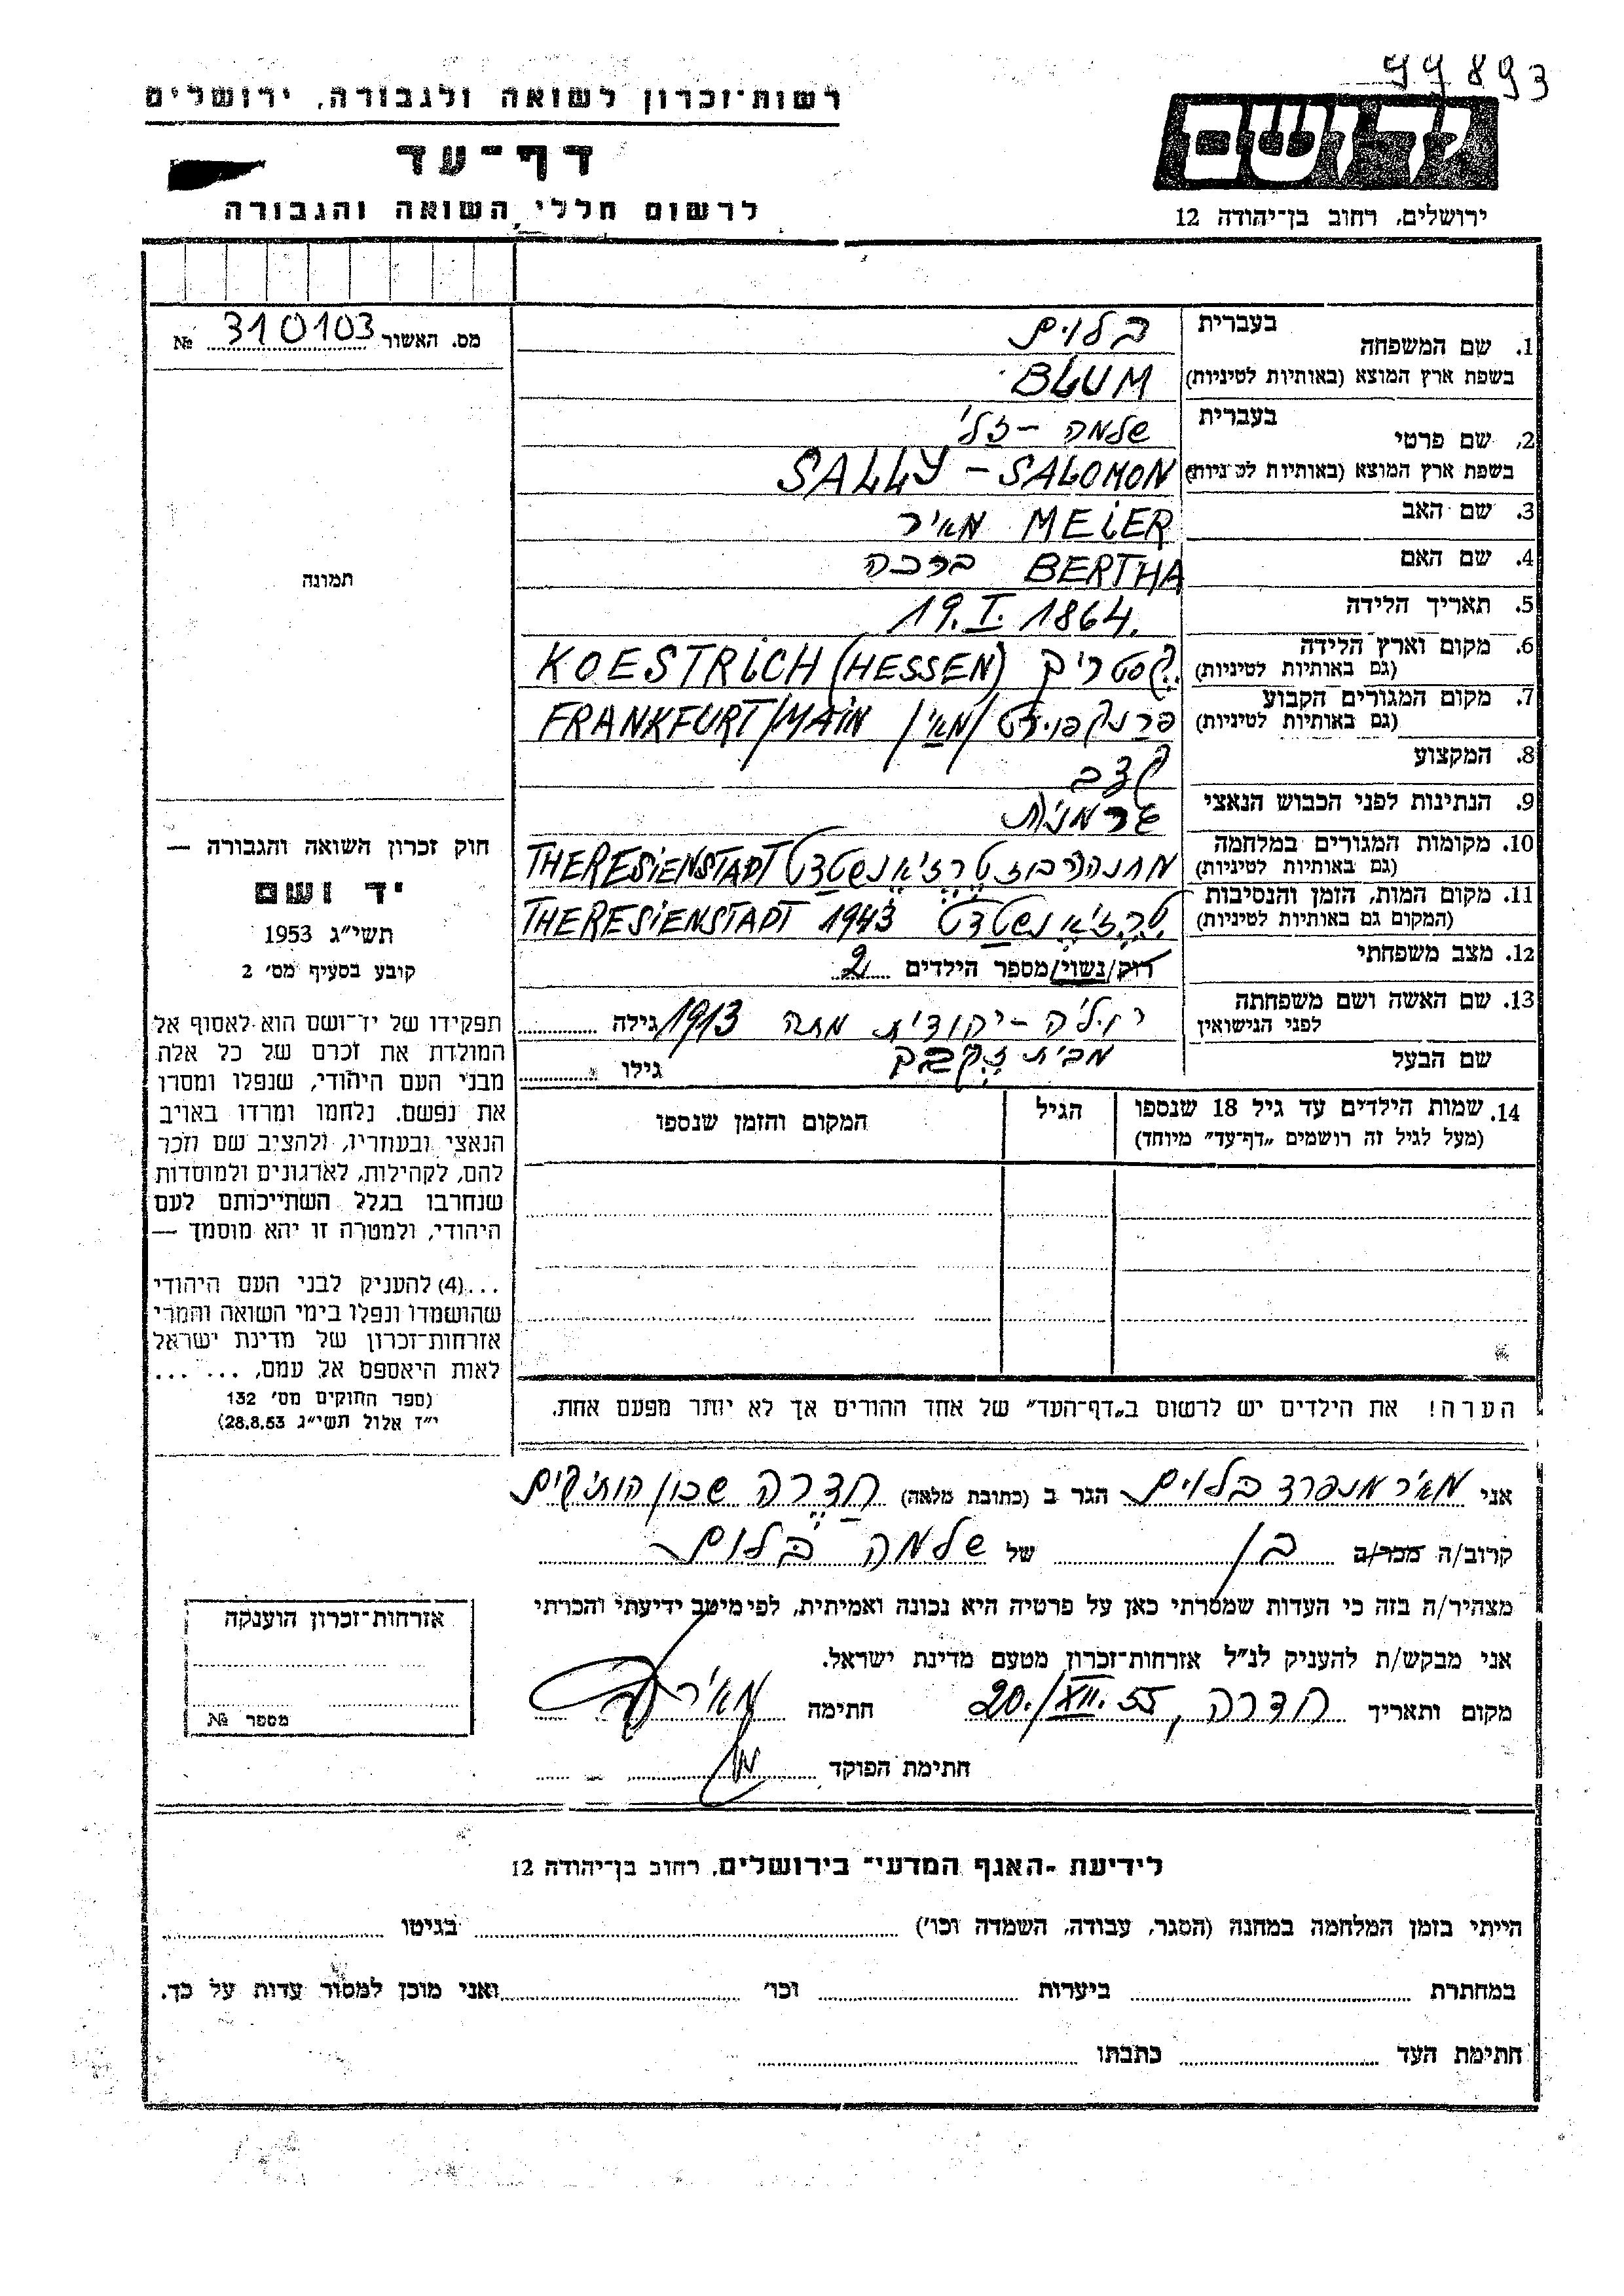 99893
רשות־זכרון לשואה ולגבורה, ירושלים
דף־עד
לרשום חללי השואה והגבורה
יד ושם
ירושלים, רחוב בן־יהודה 12
מס. האשור 310103 №
תמונה
חוק זכרון השואה והגבורה —
יד ושם
תשי״ג 1953
קובע בסעיף מס׳ 2
תפקידו של יד־ושם הוא לאסוף אל
המולדת את זכרם של כל אלה
מבני העם היהודי, שנפלו ומסרו
את נפשם, נלחמו ומרדו באויב
הנאצי ובעוזריו, ולהציב שם וזכר
להם, לקהילות, לארגונים ולמוסדות
שנחרבו בגלל השתייכותם לעם
היהודי, ולמטרה זו יהא מוסמך —
...(4) להעניק לבני העם היהודי
שהושמדו ונפלו בימי השואה והמרי
אזרחות־זכרון של מדינת ישראל
לאות היאספם אל עמם, ... ...
(ספר החוקים מס׳ 132
י״ז אלול תשי״ג 28.8.53)
1. שם המשפחה בעברית בלוים
בשפת ארץ המוצא (באותיות לטיניות) BLUM
2. שם פרטי בעברית שלמה - זלי
בשפת ארץ המוצא (באותיות לטיניות) SALLY - SALOMON
3. שם האב MEiER מאיר
4. שם האם BERTHA ברכה
5. תאריך הלידה 19.I.1864.
6. מקום וארץ הלידה
(גם באותיות לטיניות) קסטריך KOESTRiCH (HESSEN)
7. מקום המגורים הקבוע
(גם באותיות לטיניות) פרנקפורט/מאין/ FRANKFURT/MAiN
8. המקצוע קצב
9. הנתינות לפני הכבוש הנאצי גרמנית
10. מקומות המגורים במלחמה
(גם באותיות לטיניות) מחנה טרזיאנשטדט THERESiENSTADT
11. מקום המות, הזמן והנסיבות
(המקום גם באותיות לטיניות) טרזיאנשטדט THERESiENSTADT 1943
12. מצב משפחתי רוק/נשוי/מספר הילדים 2
13. שם האשה ושם משפחתה
לפני הנישואין יוליה - יהודית מתה 1913 גילה
שם הבעל מבית גילו
14. שמות הילדים עד גיל 18 שנספו
(מעל לגיל זה רושמים „דף־עד״ מיוחד)
הגיל
המקום והזמן שנספו
הערה! את הילדים יש לרשום ב„דף־העד״ של אחד ההורים אך לא יותר מפעם אחת.
אני מאיר מנפרד בלוים הגר ב (כתובת מלאה) חדרה שכון הותיקים
קרוב/ה מכר/ה בן של שלמה בלום
מצהיר/ה בזה כי העדות שמסרתי כאן על פרטיה היא נכונה ואמיתית, לפי מיטב ידיעתי והכרתי
אני מבקש/ת להעניק לנ״ל אזרחות־זכרון מטעם מדינת ישראל.
מקום ותאריך חדרה, 20./XII.55 חתימה מאיר
חתימת הפוקד
אזרחות־זכרון הוענקה
מספר №
לידיעת ״האגף המדעי״ בירושלים, רחוב בן־יהודה 12
הייתי בזמן המלחמה במחנה (הסגר, עבודה, השמדה וכו׳) בגיטו
במחתרת ביערות וכו׳ ואני מוכן למסור עדות על כך.
חתימת העד כתבתו